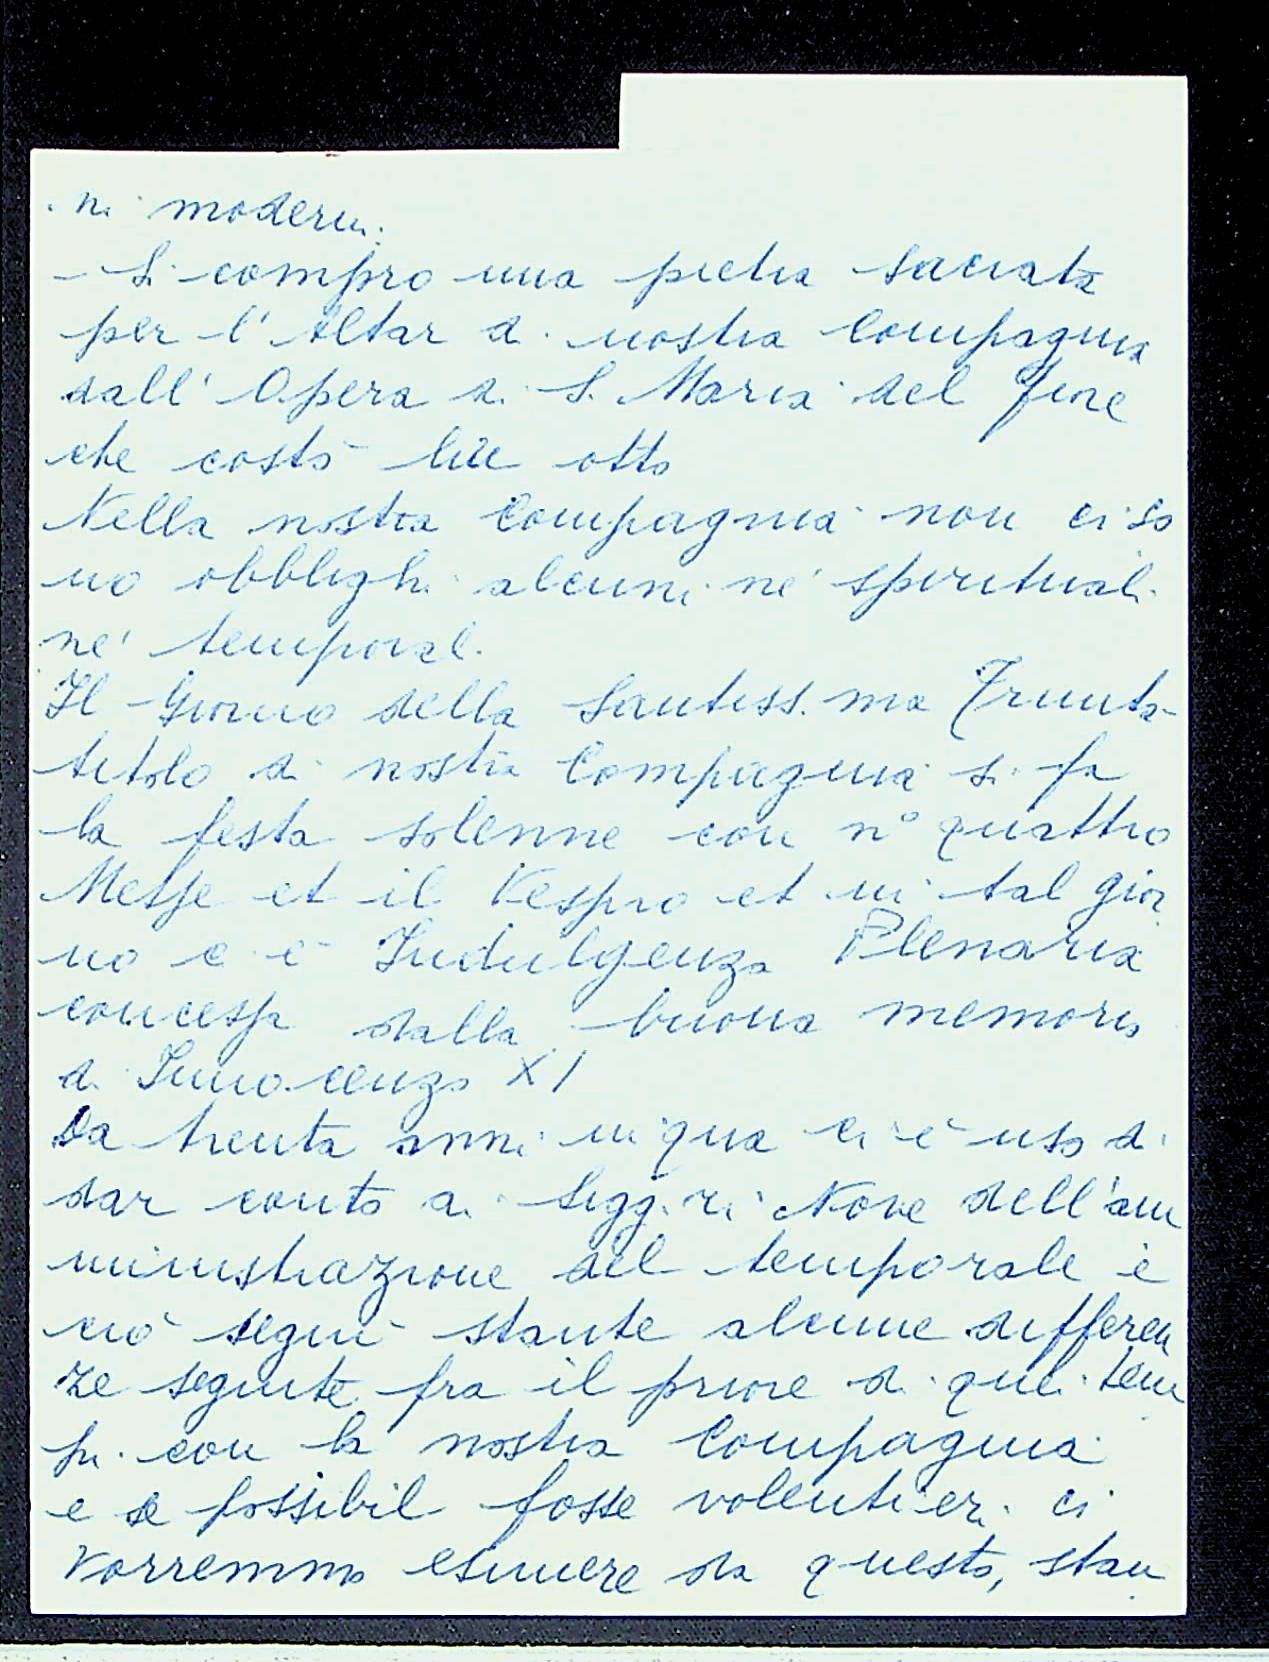 ni moderni.
- Si compro una pietra sacrata
per l'Altar di nostra Compagnia
dall'Opera di S. Maria del Fiore
che costò lire otto
Nella nostra Compagnia non ci so
no obblighi alcuni né spirituali
né temporali.
Il Giorno della Santissima Trinita
titolo di nostra Compagnia si fa
la festa solenne con n° quattro
Messe et il Vespro et in tal gior
no c'è Indulgenza Plenaria
concessa dalla buona memoria
di Innocenzo XI
Da trenta anni in qua ci è uso di
dar conto ai Sigg.ri Nove dell'am
ministrazione del temporale e
ciò seguì stante alcune differen
ze seguite fra il priore di quei tem
pi con la nostra Compagnia
e se possibil fosse volentieri ci
vorremmo esimere da questo, stan